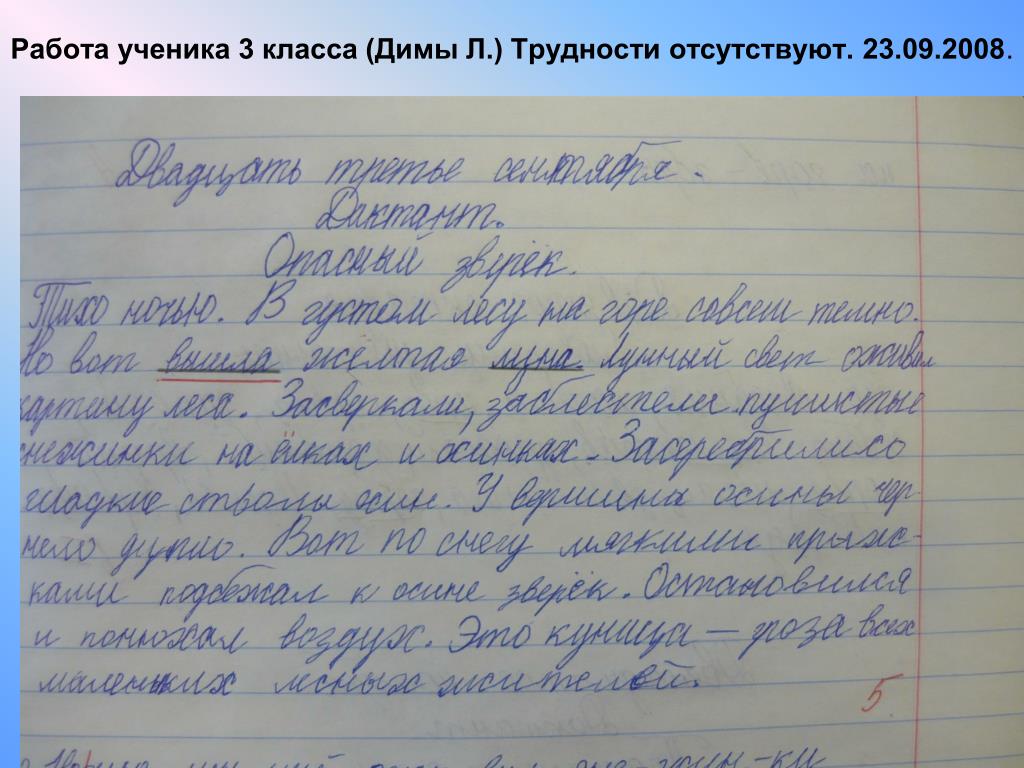 Работа ученика 3 класса (Димы Л.) Трудности отсутствуют. 23.09.2008.
Двадцать третье сентября.
Диктант.
Опасный зверёк.
Тихо ночью. В густом лесу на горе совсем темно.
Но вот вышла жёлтая луна. Лунный свет оживил
картину леса. Засверкали, заблестели пушистые
снежинки на ёлках и осинках. Засеребрились
гладкие стволы осин. У вершины осины чер-
нело дупло. Вот по снегу мягкими прыж-
ками подбежал к осине зверёк. Остановился
и понюхал воздух. Это куница — гроза всех
маленьких лесных жителей.
5